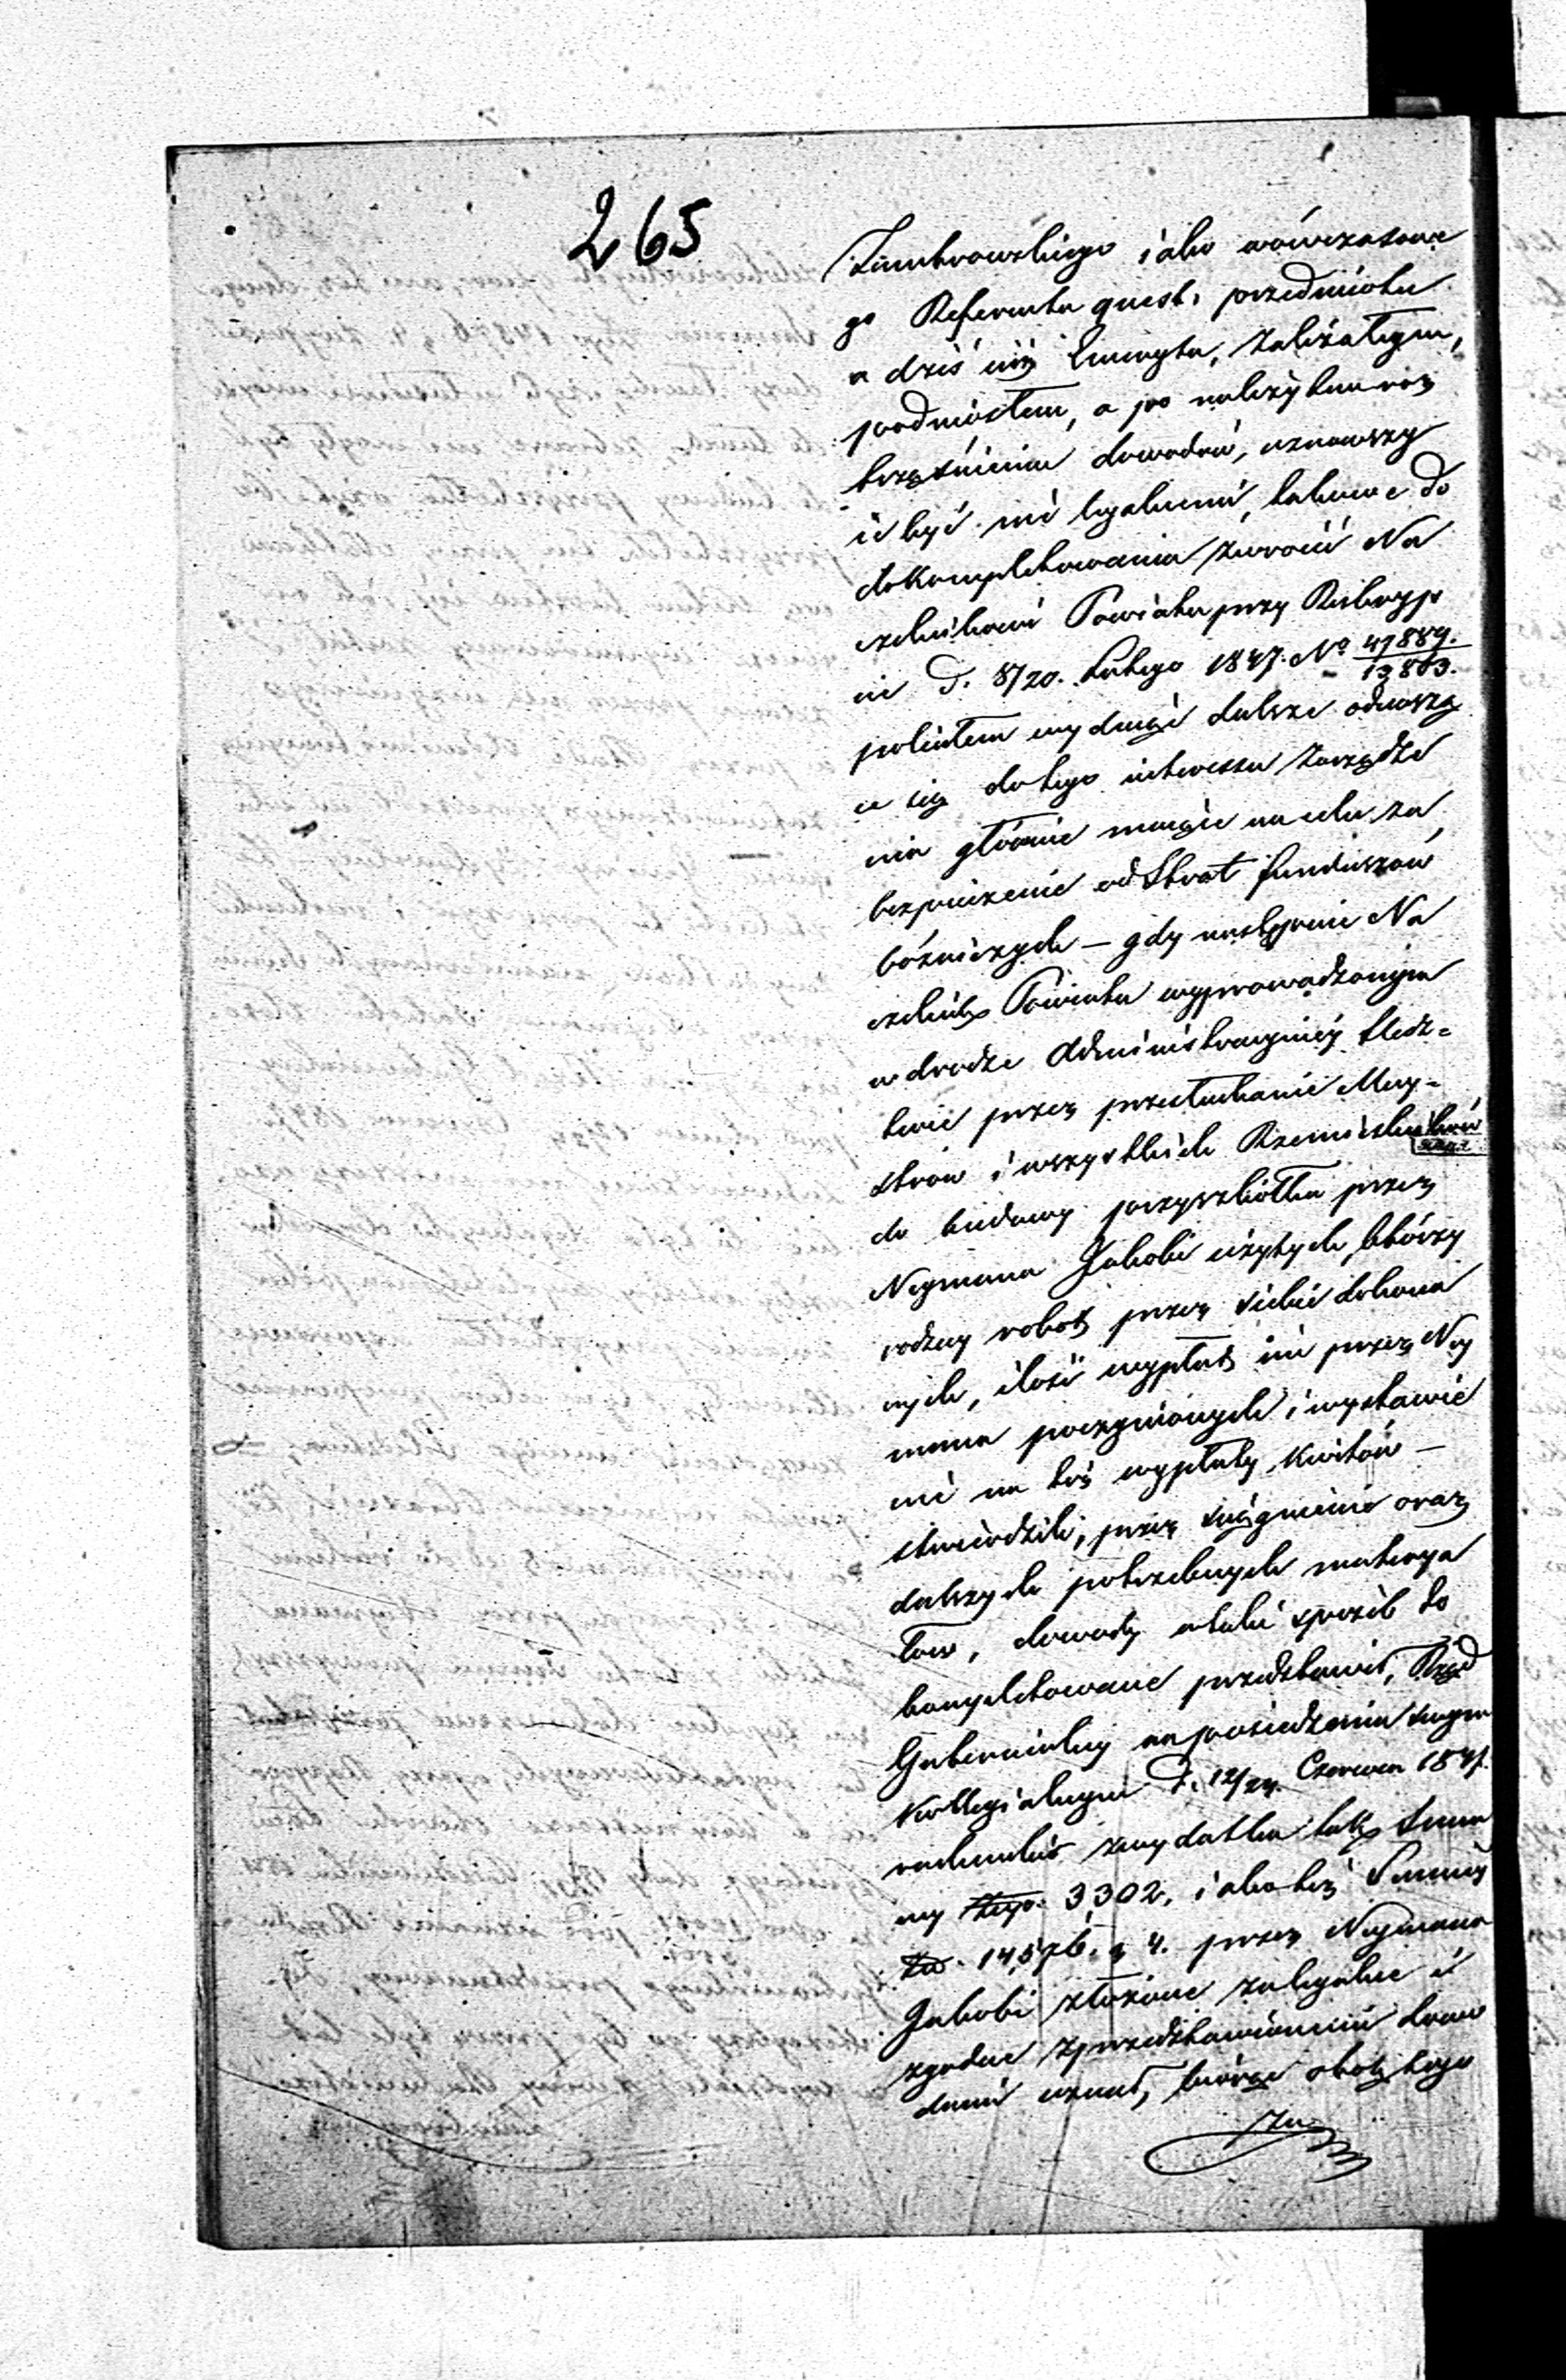 265
Zambrowskiego iako wówczasowe
go Referenta quest: przedmiotu
a dziś iuż Emeryta, załeżałym,
podniosłem, a po należytem roz
trząśnieniu dowodów, uznawszy
iż być nie legalnemi, takowe do
dokompletowania zwrócić Na
czelnikowi Powiatu przy Reskryp
cie d. 8/20. Lutego 1847. No 47889./13863.
poleciłem wydając dalsze odnoszą
ce się do tego interessu Zarządze
nia głównie maiące na celu za
bezpieczenie od Strat funduszów
bóżniczych — gdy następnie Na
czelnik Powiatu wyprowadzonym
w drodze Administracyjnéj Sledz-
twie przez przesłuchanie May-
strów i wszystkich Rzemieślników
do budowy przyszkółka przez
Neymana Jakobi użytych, którzy
rodzay robot przez siebie dokona
nych, ilość wypłat im przez Ney
mana poczynionych i wystawie
nie na też wypłaty kwitów —
stwierdzili, przez ściągnienie oraz
dalszych potrzebnych materya
łów, dowody w taki sposób do
kompletowane przedstawił, Rząd
Gubernialny na posiedzeniu swym
Kollegialnym d. 12/24. Czerwca 1847.
rachunki z wydatku tak Summ
my 3302, iako też Summy
14,576. g 4. przez Neymana
Jakobi złożone za legalne i
zgodne z przedstawionemi dowo
dami uznał, biorąc obok tego